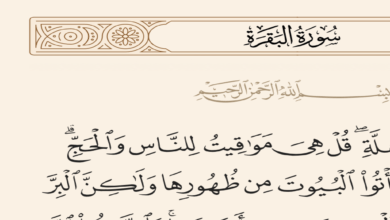 سُورَةُ البَقَرَةِ
ـسْمِ ٱللَّهِ ٱلرَّحْمَٰنِ ٱلرَّحِيمِ
ـلَّةِ ۖ قُلْ هِىَ مَوَٰقِيتُ لِلنَّاسِ وَٱلْحَجِّ ۗ
ـأْتُوا۟ ٱلْبُيُوتَ مِن ظُهُورِهَا وَلَٰكِنَّ ٱلْبِرَّ